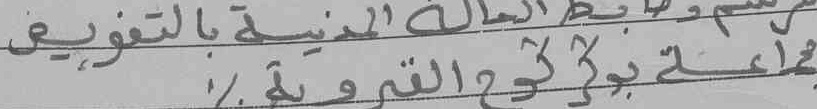 وضابط الحالة المدنية بالتفويض
جماعة بوكركوح القروية ./.